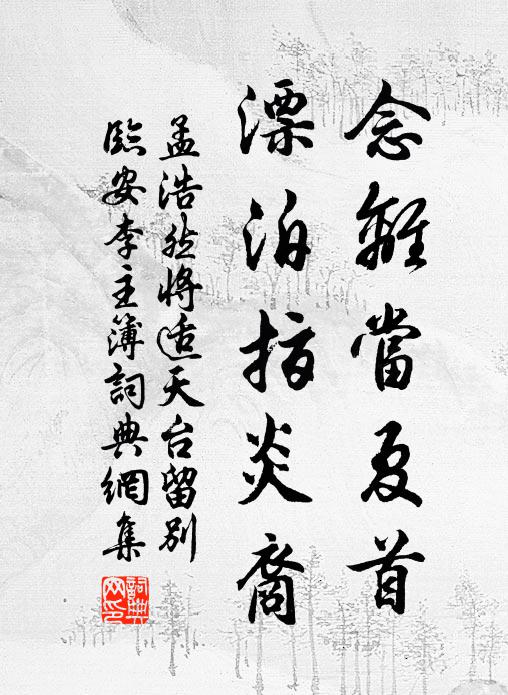 念離當夏首
漂泊指炎裔
孟浩然將适天台留別
臨安李主簿詞典網集
詞典网印